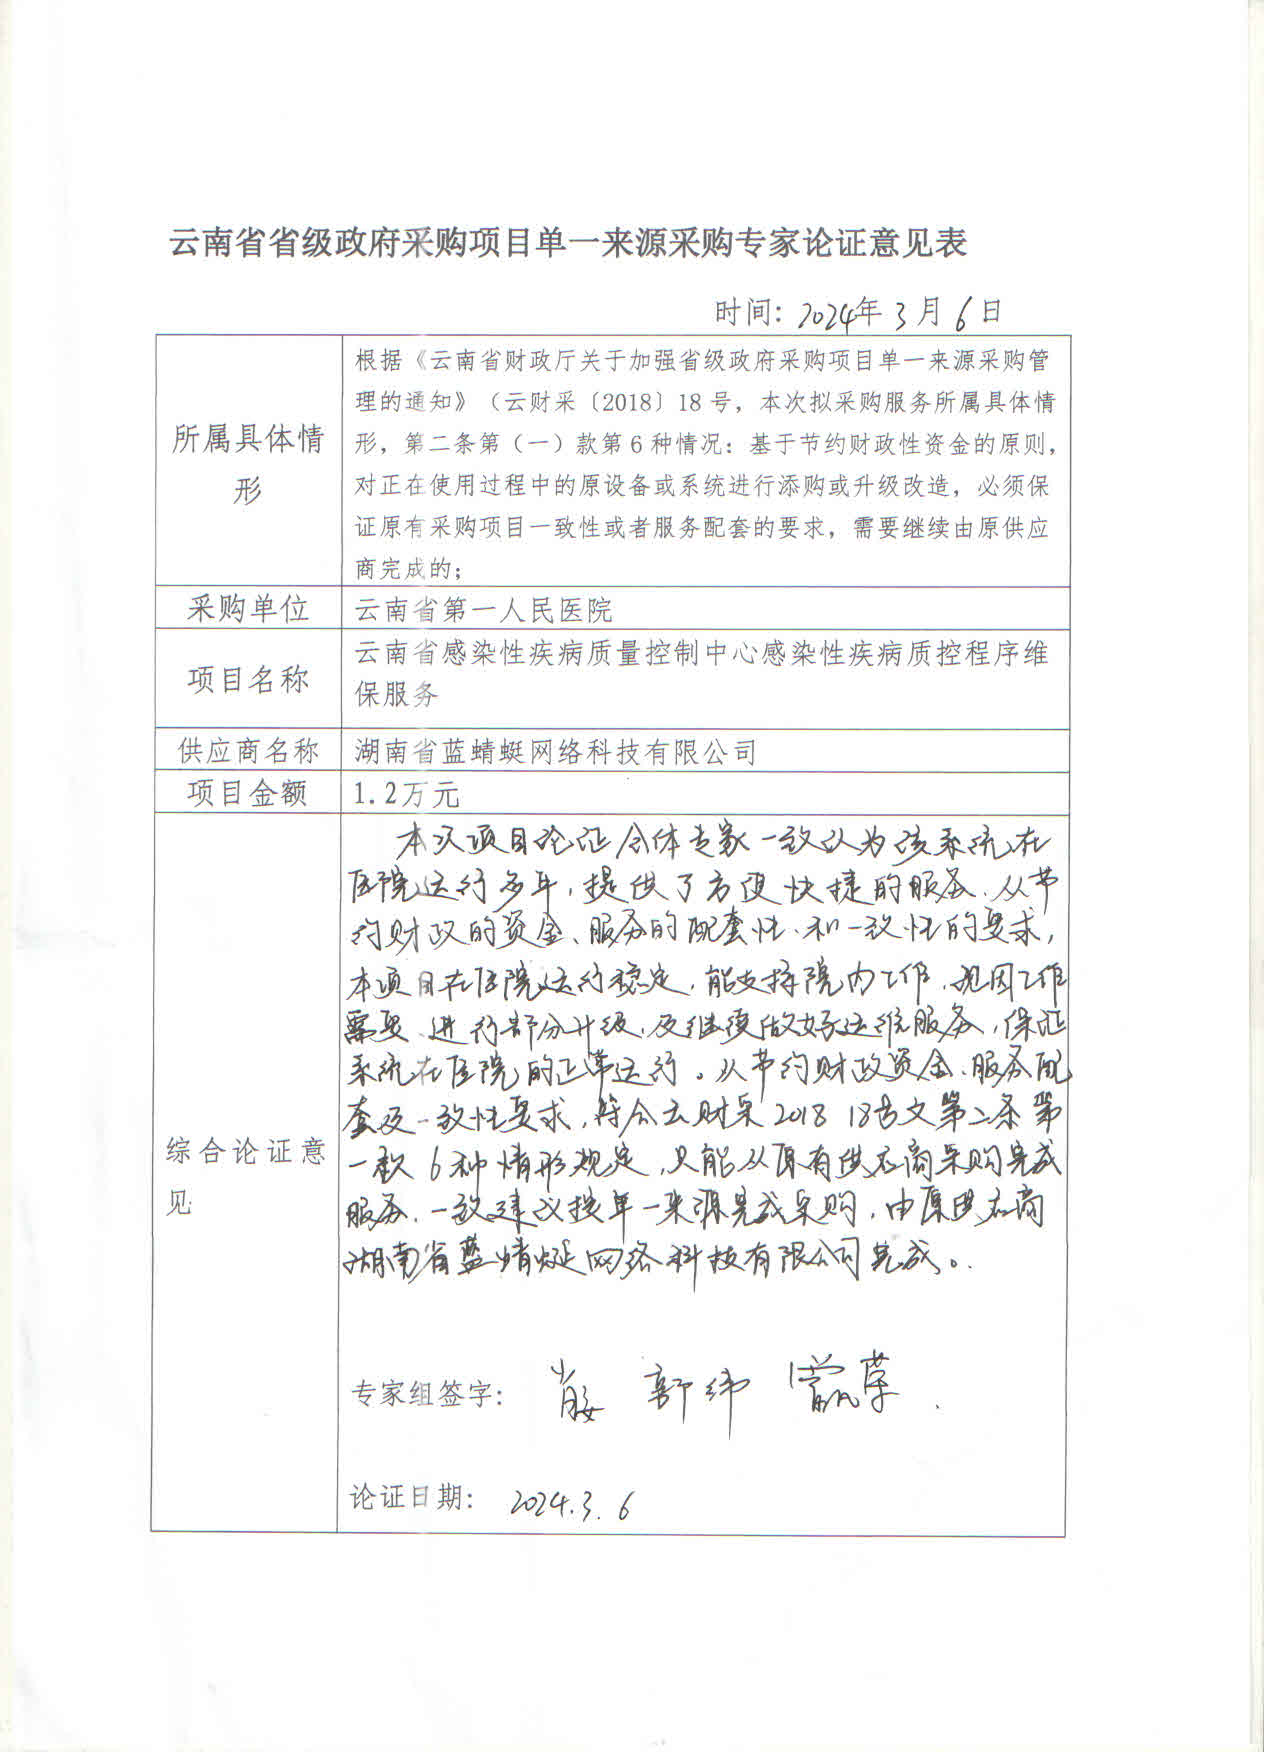 云南省省级政府采购项目单一来源采购专家论证意见表
时间：2024年3月6日
所属具体情
形
根据《云南省财政厅关于加强省级政府采购项目单一来源采购管
理的通知》（云财采〔2018〕18号，本次拟采购服务所属具体情
形，第二条第（一）款第6种情况：基于节约财政性资金的原则，
对正在使用过程中的原设备或系统进行添购或升级改造，必须保
证原有采购项目一致性或者服务配套的要求，需要继续由原供应
商完成的；
采购单位
云南省第一人民医院
项目名称
云南省感染性疾病质量控制中心感染性疾病质控程序维
保服务
供应商名称
湖南省蓝蜻蜓网络科技有限公司
项目金额
1.2万元
综合论证意
见
本次项目论证会体专家一致认为该系统在
医院运行多年，提供了方便快捷的服务．从节
约财政的资金、服务的配套性、和一致性的要求，
本项目在医院运行稳定，能支持院内工作，现因工作
需要、进行部分升级，及继续做好运维服务，保证
系统在医院的正常运行。从节约财政资金、服务配
套及一致性要求，符合云财采2018 18号文第二条第
一款6种情形规定，只能从原有供应商采购完成
服务．一致建议按单一来源完成采购，由原供应商
湖南省蓝蜻蜓网络科技有限公司完成。
专家组签字：
论证日期：2024.3.6